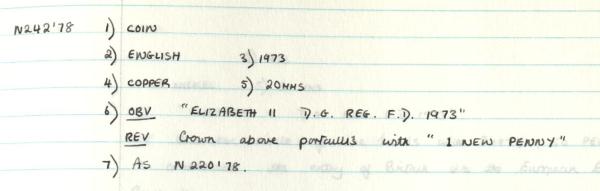 N242'78 1) COIN
2) ENGLISH 3) 1973
4) COPPER 5) 20MMS
6) OBV "ELIZABETH II D.G. REG. F.D. 1973"
REV Crown above portcullis with "1 NEW PENNY"
7) AS N220'78.